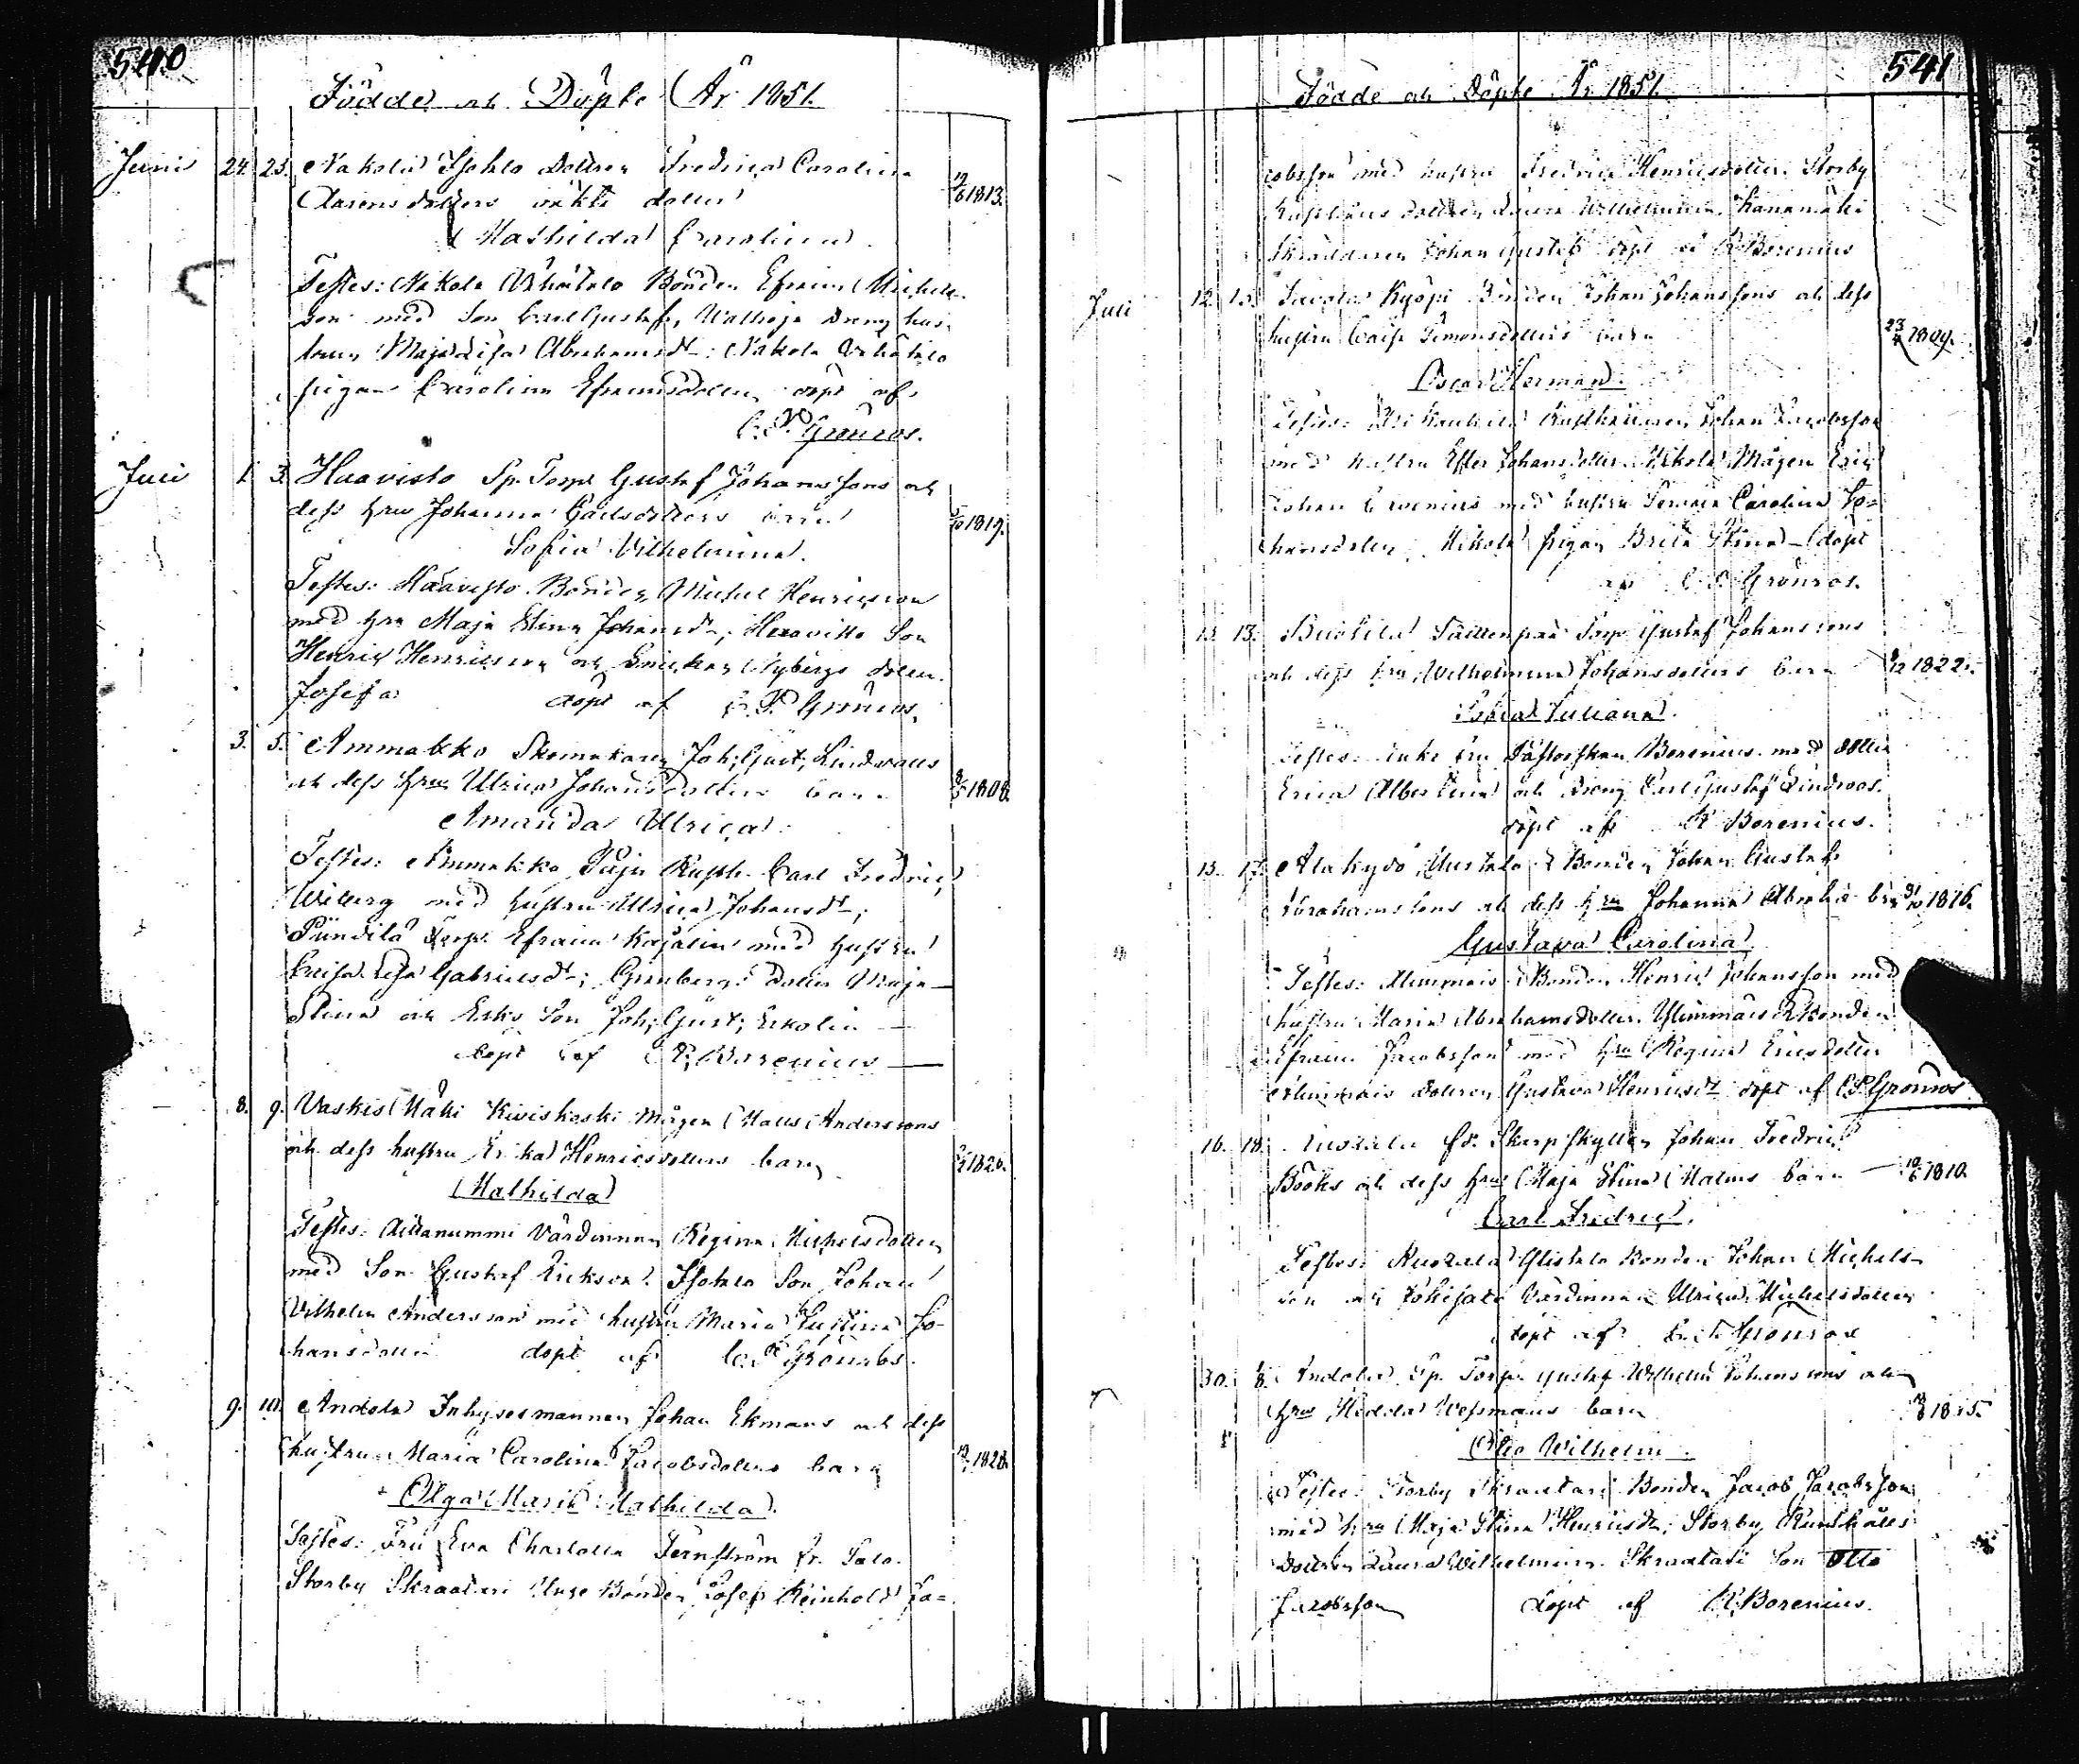 540
Födde och Döpte År 1851.
Juni 24. 25. Nakola Isotalo Dottren Fredrica Carolina 12/6 1813.
Clarensdotters oäkta dotter
Mathilda Carolina.
Testes: Nakola Vähätalo Bonden Efraim Michels-
son med Son Carl Gustaf, Dreng hus-
trun Maja Lisa Abrahamsdr; Nakola Vähätalo
pigan Carolina Efraimsdotter döpt af
C. P. Grönroos.
Juli 1. 3. Haavisto Sp. Torp. Gustaf Johanssons och
dess hru Johanna Carlsdotters barn 5/10 1819.
Sofia Vilhelmina.
Testes: Haavisto Bonden Michel Henricsson
med hru Maja Stina Johansdr; Haavisto Son
Henric Henricsson och Nybergs dotter
Josefa döpt af C. P. Grönroos.
3. 5. Ammakko Skomakaren Joh; Gust; Lindvalls
och dess hru Ulrica Johansdotters barn 1808.
Amanda Ulrica.
Testes: Ammakko Rusth. Carl Fredric
Wiberg med hustru Ulrica Johansdr;
Torp. Efraim Kajalin med hustru
Caisa Lisa Gabrielsdr; Grönbergs dotter Maja
Stina och Esko Son Joh; Gust; Eskolin
döpt af R. Borenius
8. 9. Vaskis Mäki Kiviskoski Mågen Matts Anderssons
och dess hustru Erika Henricsdotters barn 1826.
Mathilda
Testes: Aittanummi Värdinnan Regina Michelsdotter
med Son Gustaf Ericsson. Isotalo Son Johan
Vilhelm Andersson med hustru Maria Justina Jo-
hansdotter döpt af C. P. Grönroos.
9. 10. Andola Inhysesmannen Johan Ekmans och dess
hustru Maria Carolina Jacobsdotters barn 1828.
Olga Maria Mathilda.
Testes: Fru Eva Charlotta Ternström fr. Salo.
Storby Skraatari Unge Bonden Josef Reinhold Ja=
541
Födde och Döpte År 1851.
cobsson med hustru Fredrica Henricsdotter. Storby
Rusthålls dottren Laura Wilhelmina. Kanamäki
Skräddaren Johan Gustaf döpt af R Borenius
Juli 12. 13. Kyöpi Bonden Johan Johanssons och dess
hustru Caisa Simonsdotters barn 23/4 1809.
Oscar Herman.
Testes: Rusthållaren Johan Jacobsson
med hustru Ester Johansdotter. Mikola Mågen Eric
Johan med hustru Carolina Jo=
hansdotter, Mikola pigan Brita Stina döpt
af C. P. Grönroos.
13. 13. Torp. Gustaf Johanssons
och dess hru Wilhelmina Johansdotters barn 1822.
Sofia Juliana.
Testes: Enke fru Pastorskan Borenius med dotter
Erica Albertina och dreng Carl Gustaf Lindroos.
döpt af R Borenius.
15. 17. Alakydö Uustalo Bonden Johan Gustaf
Abrahamssons och dess hru Johanna barn 31/10 1816.
Gustava Carolina
Testes: Alimmais Bonden Henric Johansson med
hustru Maria Abrahamsdotter. Ylimmäis Bonden
Efraim Jacobsson med hru Regina Ericsdotter
Alimmais dottren Gustava Henricsdr döpt af C. P. Grönroos
16. 18. fd. Skarpskytten Johan Fredric
Bööks och dess hru Maja Stina Malms barn 10/6 1810.
Carl Fredric.
Testes: Ylistalo Bonden Johan Michels-
son och Värdinnan Ulrica Michelsdotter
döpt af C. P. Grönroos
30. 8. Andola Sp. Torp. Gustaf Wilhelm Johanssons och
hru Hedda Wessmans barn
Otto Wilhelm.
Testes: Storby Skraatari Bonden Jacob Jacobsson
med hru Maja Stina Henricsdr; Storby Rusthålls
dottren Laura Wilhelmina. Skraatari Son Otto
Jacobsson döpt af R. Borenius.